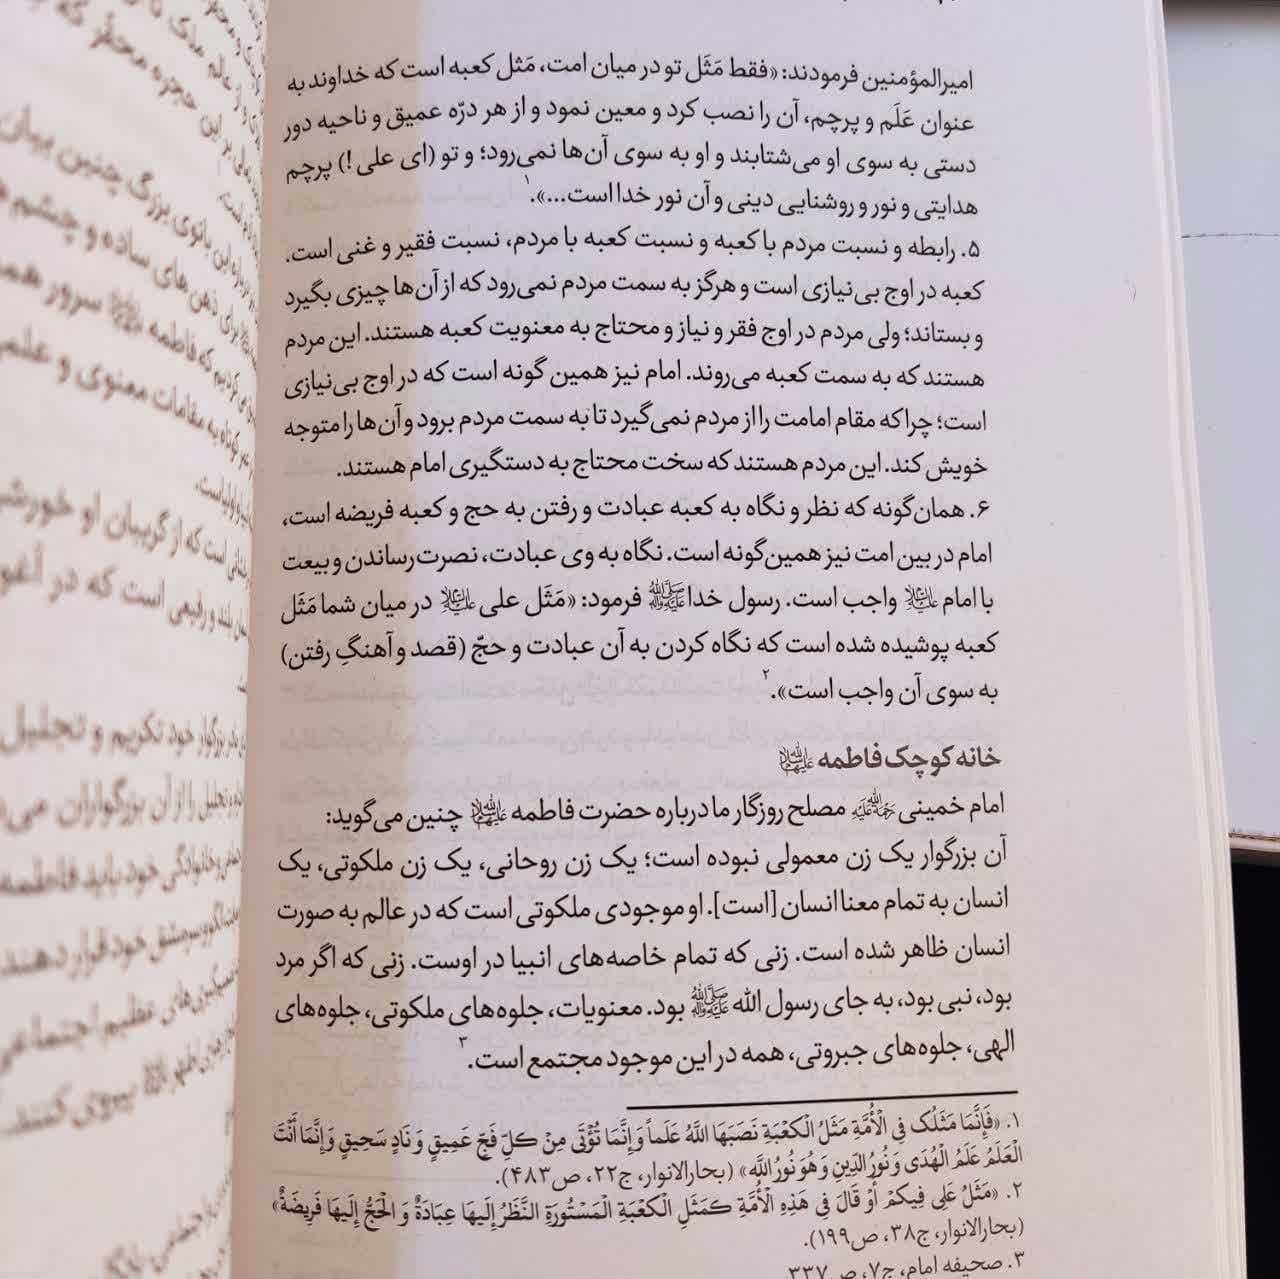 امیرالمؤمنین فرمودند: «فقط مَثَل تو در میان امت، مَثل کعبه است که خداوند به
عنوان عَلَم و پرچم، آن را نصب کرد و معین نمود و از هر درّه عمیق و ناحیه دور
دستی به سوی او می‌شتابند و او به سوی آن‌ها نمی‌رود؛ و تو (ای علی !) پرچم
هدایتی و نور و روشنایی دینی و آن نور خدا است...».۱
۵. رابطه و نسبت مردم با کعبه و نسبت کعبه با مردم، نسبت فقیر و غنی است.
کعبه در اوج بی‌نیازی است و هرگز به سمت مردم نمی‌رود که از آن‌ها چیزی بگیرد
و بستاند؛ ولی مردم در اوج فقر و نیاز و محتاج به معنویت کعبه هستند. این مردم
هستند که به سمت کعبه می‌روند. امام نیز همین گونه است که در اوج بی‌نیازی
است؛ چراکه مقام امامت را از مردم نمی‌گیرد تا به سمت مردم برود و آن‌ها را متوجه
خویش کند. این مردم هستند که سخت محتاج به دستگیری امام هستند.
۶. همان‌گونه که نظر و نگاه به کعبه عبادت و رفتن به حج و کعبه فریضه است،
امام در بین امت نیز همین‌گونه است. نگاه به وی عبادت، نصرت رساندن و بیعت
با امام علیه‌السلام واجب است. رسول خدا ﷺ فرمود: «مَثَل علی علیه‌السلام در میان شما مَثَل
کعبه پوشیده شده است که نگاه کردن به آن عبادت و حجّ (قصد و آهنگِ رفتن)
به سوی آن واجب است».۲
خانه کوچک فاطمه علیهاالسلام
امام خمینی رحمة‌الله‌علیه مصلح روزگار ما درباره حضرت فاطمه علیهاالسلام چنین می‌گوید:
آن بزرگوار یک زن معمولی نبوده است؛ یک زن روحانی، یک زن ملکوتی، یک
انسان به تمام معنا انسان [است]. او موجودی ملکوتی است که در عالم به صورت
انسان ظاهر شده است. زنی که تمام خاصه‌های انبیا در اوست. زنی که اگر مرد
بود، نبی بود، به جای رسول الله ﷺ بود. معنویات، جلوه‌های ملکوتی، جلوه‌های
الهی، جلوه‌های جبروتی، همه در این موجود مجتمع است.۳
۱. «فَإِنَّمَا مَثَلُكَ فِي الْأُمَّةِ مَثَلُ الْكَعْبَةِ نَصَبَهَا اللَّهُ عَلَماً وَإِنَّمَا تُؤْتَى مِنْ كُلِّ فَجٍّ عَمِيقٍ وَ نَادٍ سَحِيقٍ وَإِنَّمَا أَنْتَ
الْعَلَمُ عَلَمُ الْهُدَى وَ نُورُ الدِّينِ وَ هُوَ نُورُ اللَّهِ» (بحارالانوار، ج۲۲، ص۴۸۳).
۲. «مَثَلُ عَلِي فِيكُمْ أَوْ قَالَ فِي هَذِهِ الْأُمَّةِ كَمَثَلِ الْكَعْبَةِ الْمَسْتُورَةِ النَّظَرُ إِلَيهَا عِبَادَةٌ وَ الْحَجُّ إِلَيهَا فَرِيضَةٌ»
(بحارالانوار، ج۳۸، ص۱۹۹).
۳. صحیفه امام، ج۷، ص۳۳۷
بزرگ چنین بیان
برای ذهن‌های ساده و چشم
که فاطمه سرور
به مقامات معنوی و علمی
است که از گریبان او
بلند و رفیعی است که در
بزرگوار خود تکریم و تجلیل
تجلیل را از آن بزرگواران
خانوادگی خود باید فاطمه
سرمشق خود قرار دهند
عظیم اجتماعی
پیروی کنند